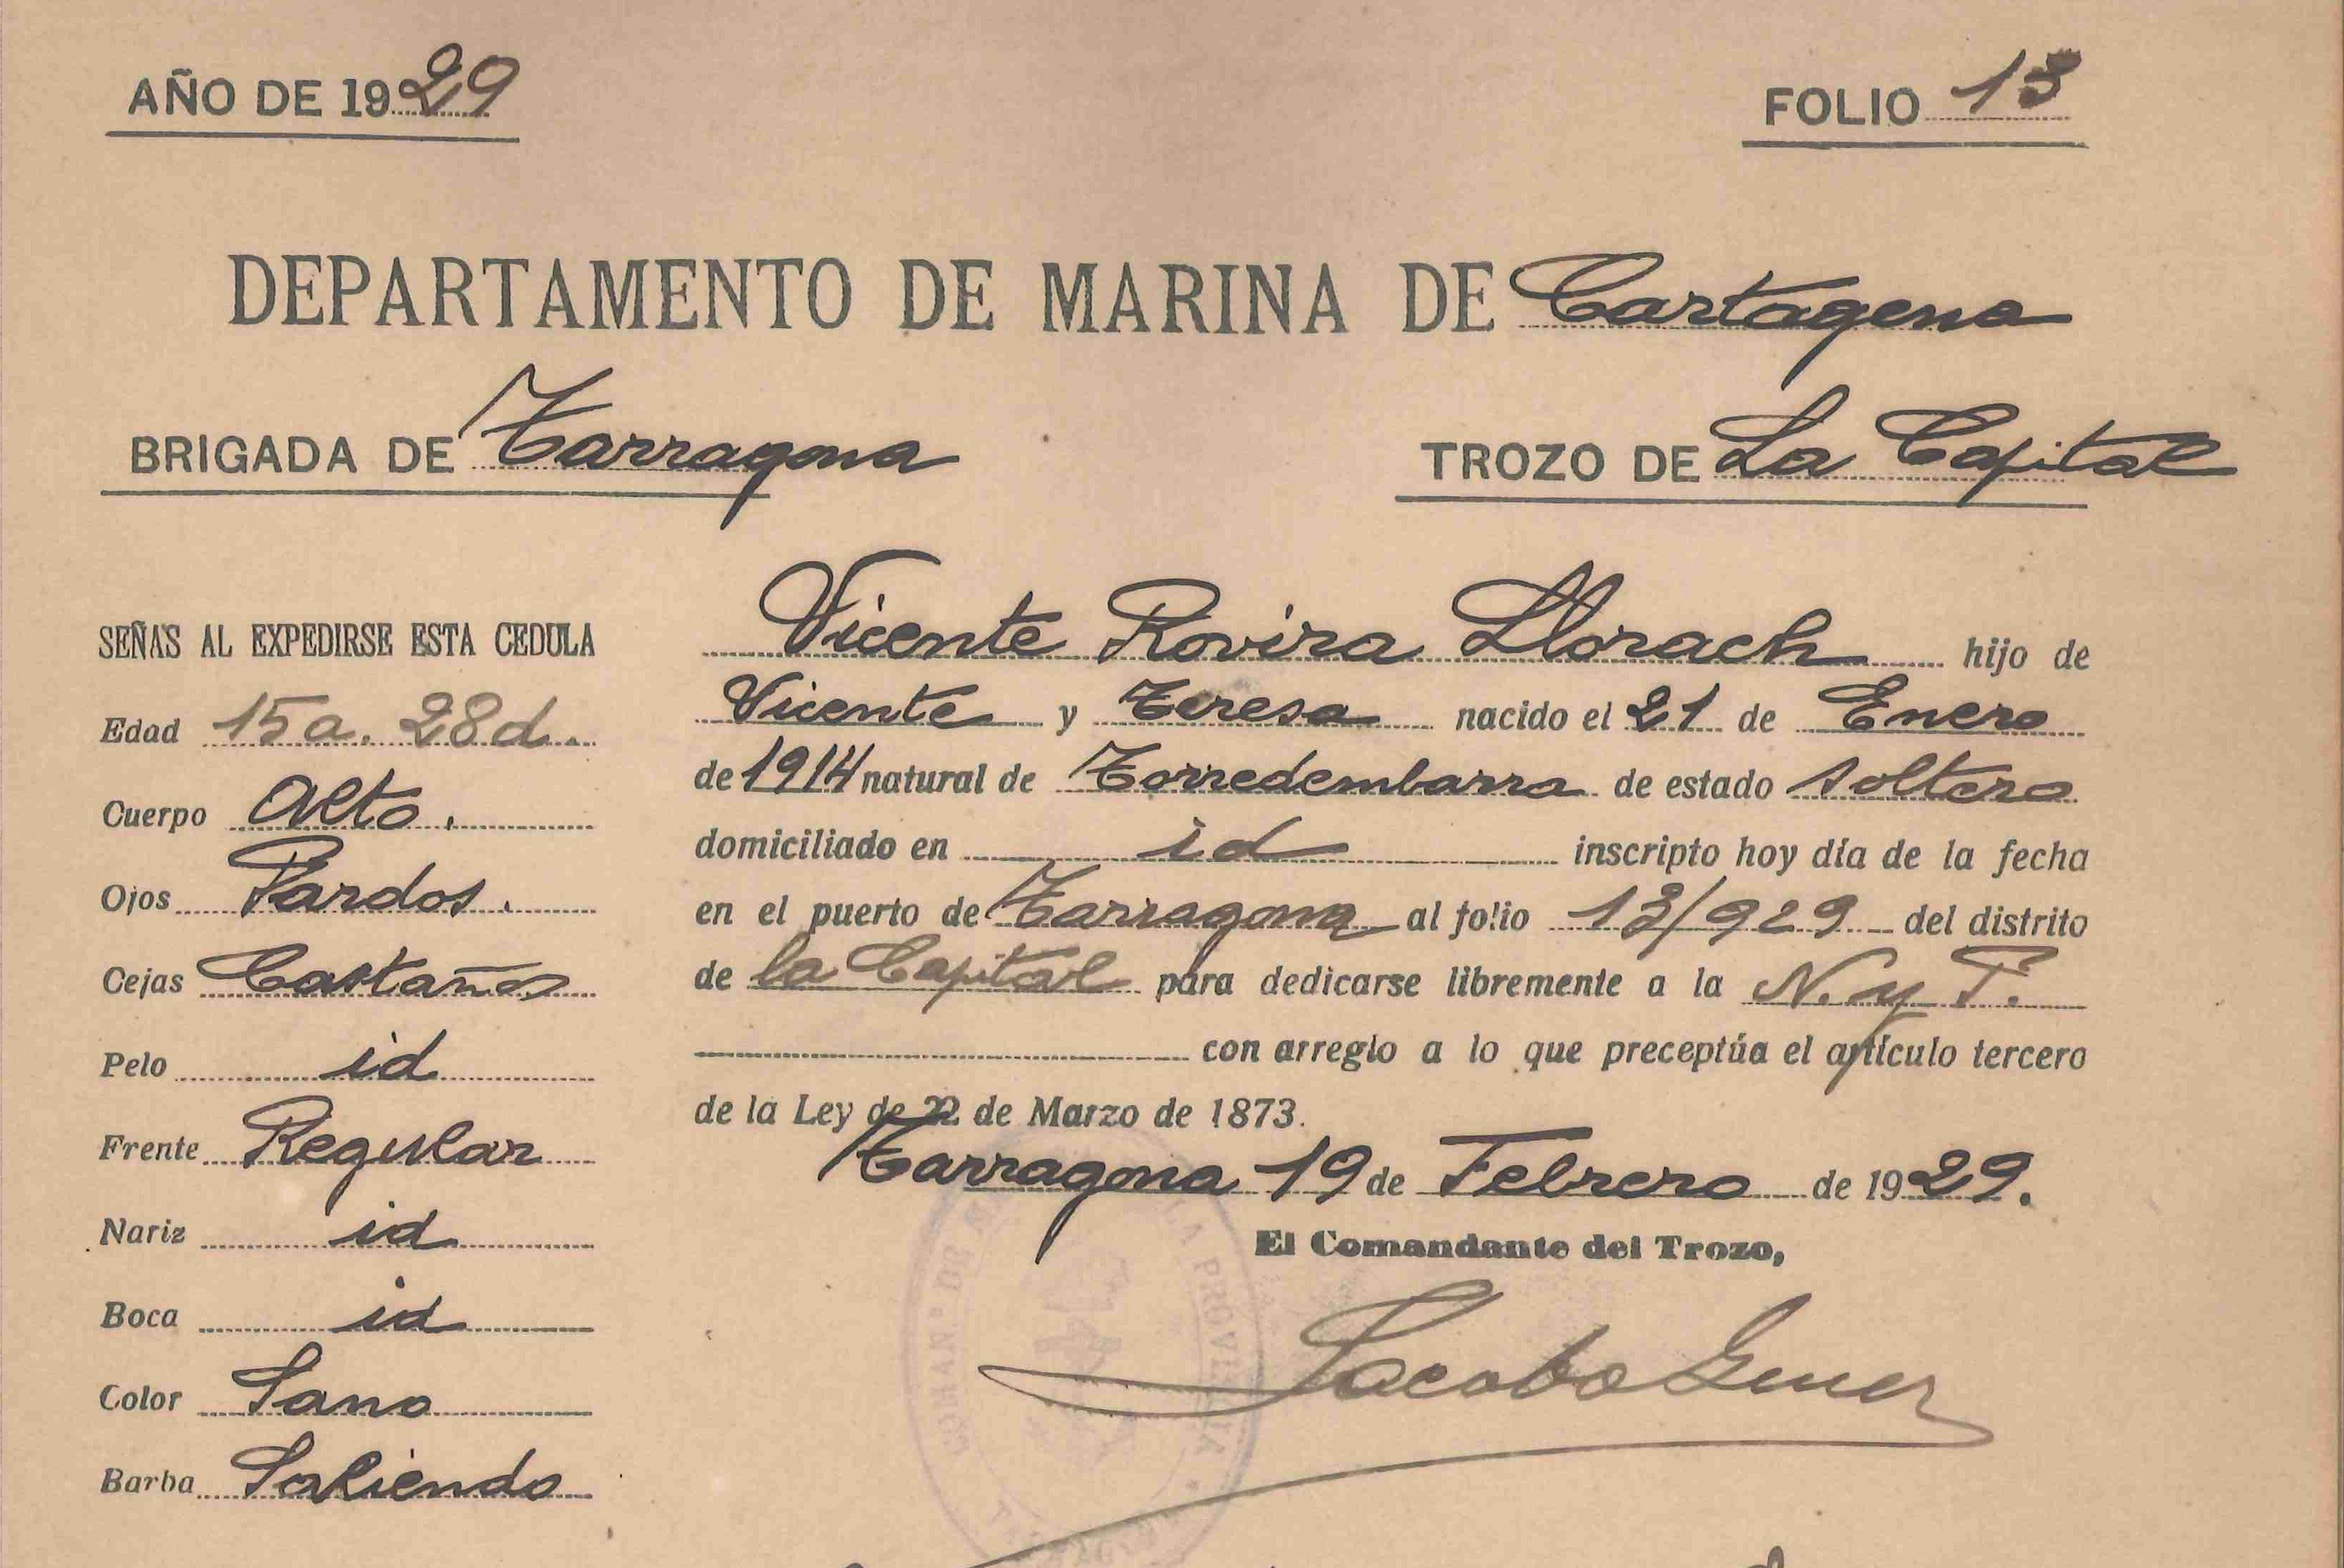 AÑO DE 1929
FOLIO 13
DEPARTAMENTO DE MARINA DE Cartagena
BRIGADA DE Tarragona
TROZO DE La Capital
SEÑAS AL EXPEDIRSE ESTA CEDULA
Edad 15 a. 28 d.
Cuerpo Alto.
Ojos Pardos.
Cejas Castaños
Pelo id
Frente Regular
Nariz id
Boca id
Color Sano
Barba Saliendo
Vicente Rovira Llorach hijo de
Vicente y Teresa nacido el 21 de Enero
de 1914 natural de Torredembarra de estado soltero
domiciliado en id inscripto hoy día de la fecha
en el puerto de Tarragona al folio 13/929 del distrito
de la Capital para dedicarse libremente a la N. y P.
con arreglo a lo que preceptúa el artículo tercero
de la Ley de 22 de Marzo de 1873.
Tarragona 19 de Febrero de 1929.
El Comandante del Trozo,
Jacobo Gener